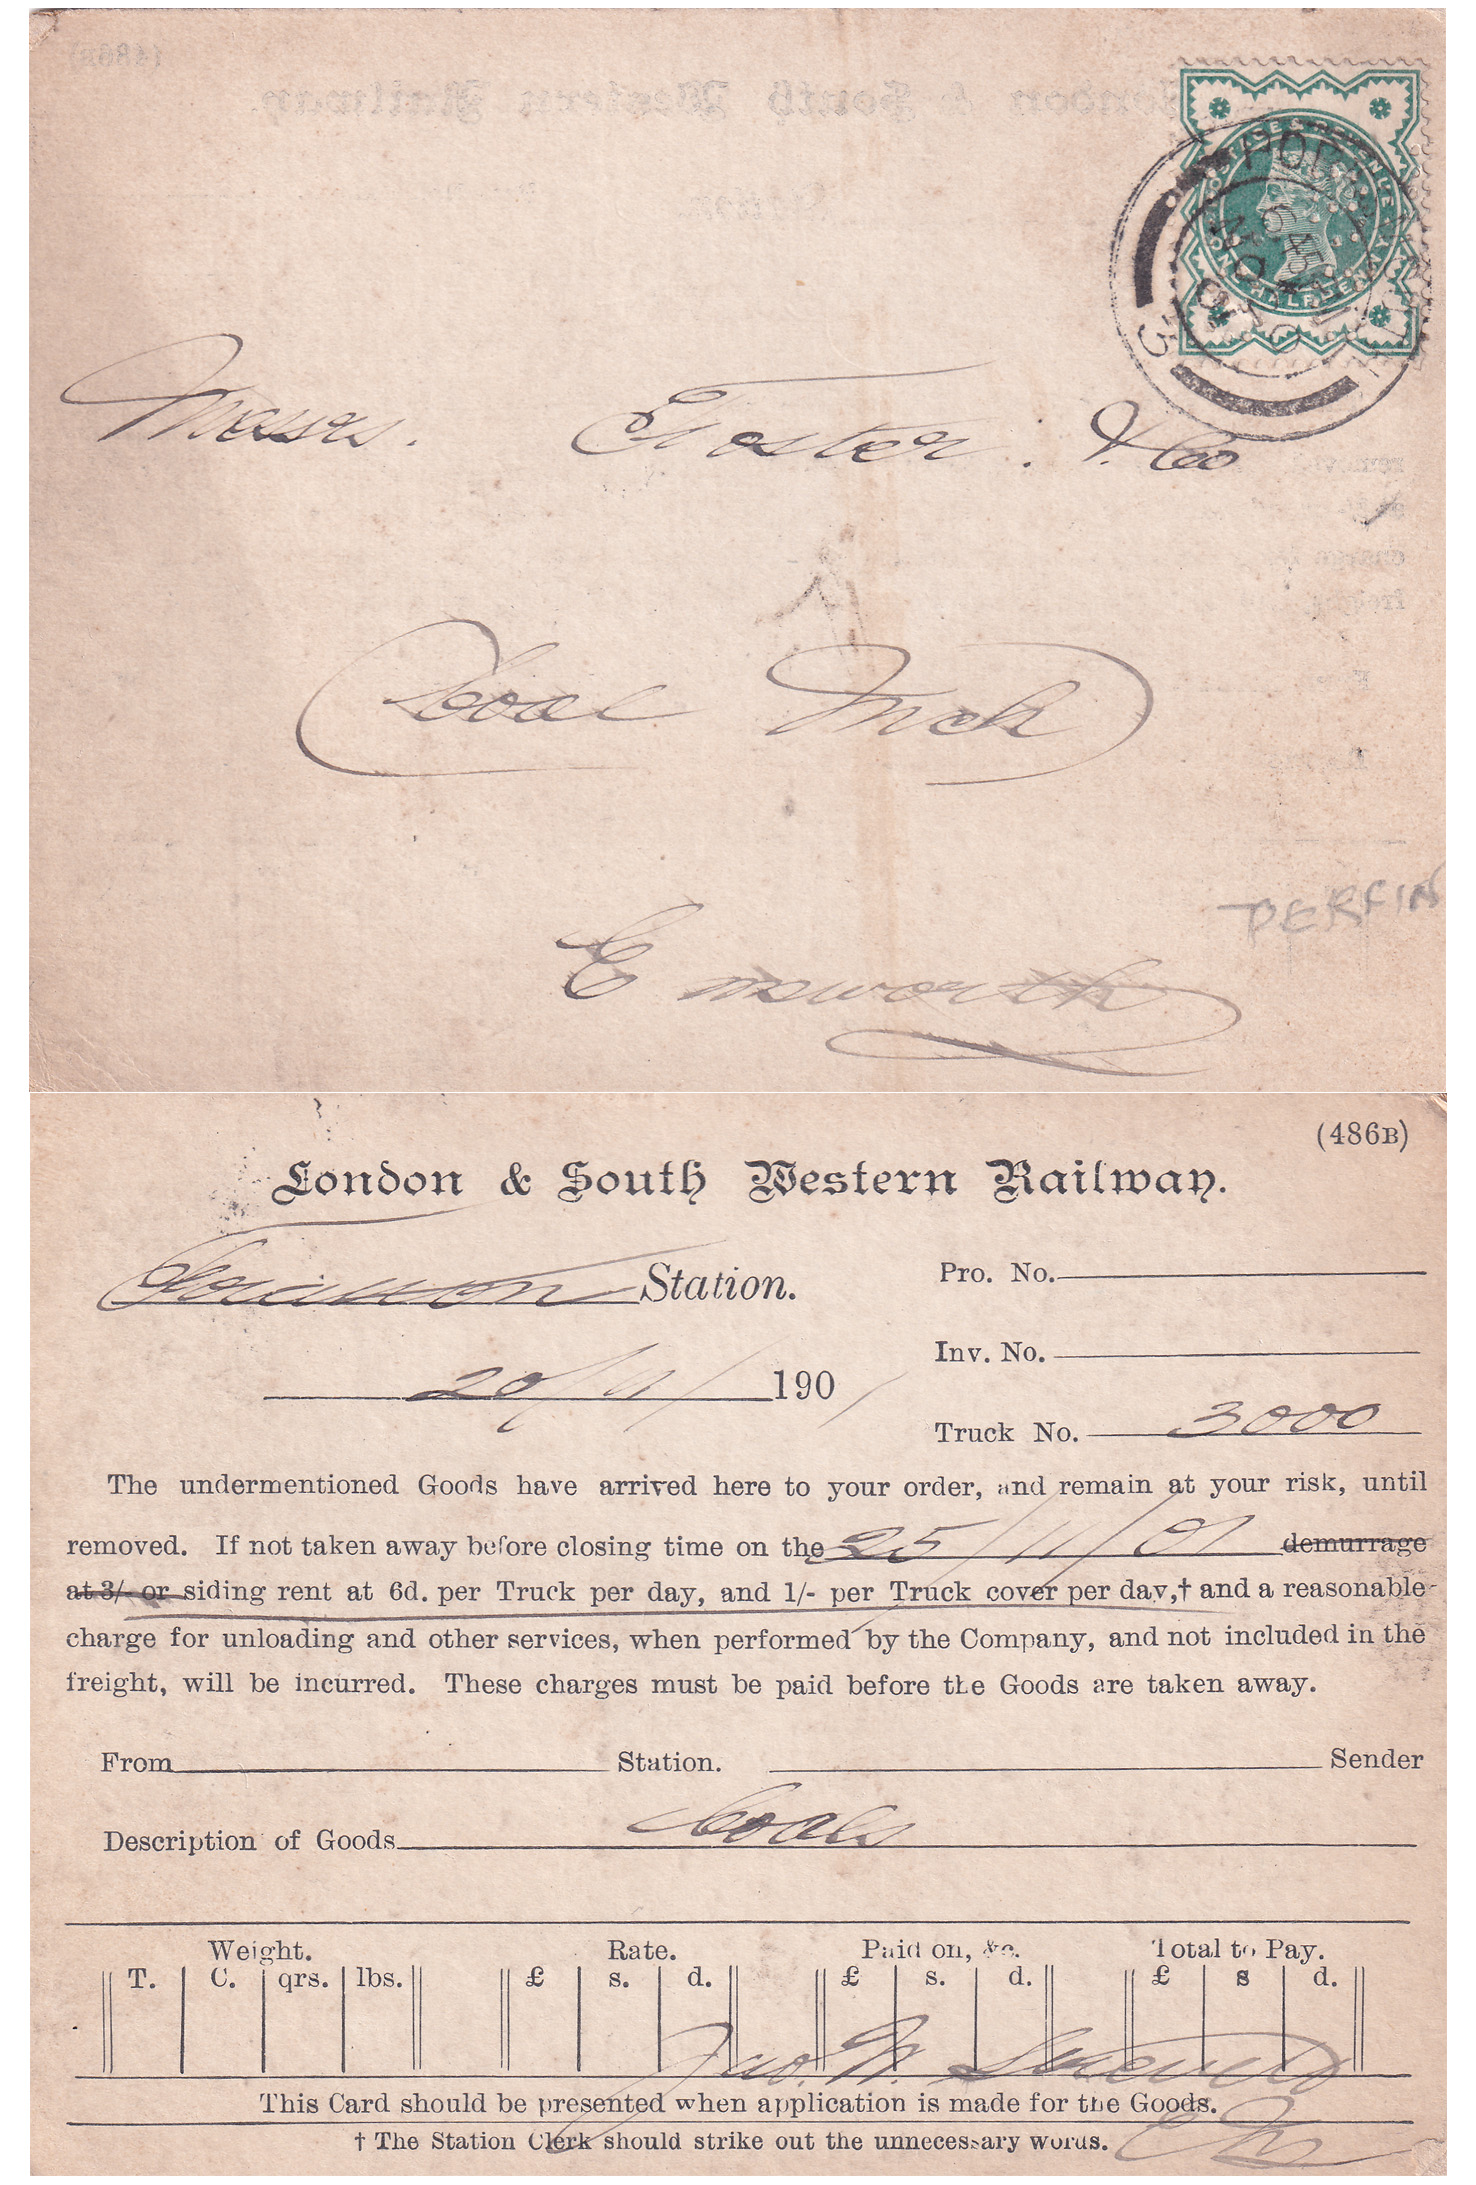 POSTAGE & REVENUE
ONE HALFPENNY
6 45 PM
NO 20
01
3
Messrs. Foster. & Co
Coal Mch
Emsworth
PERFIN
(486B)
London & South Western Railway.
Station.
Pro. No.
Inv. No.
20/11/ 1901
Truck No. 3000
The undermentioned Goods have arrived here to your order, and remain at your risk, until
removed. If not taken away before closing time on the 25/11/01 demurrage
at 3/- or siding rent at 6d. per Truck per day, and 1/- per Truck cover per day,† and a reasonable
charge for unloading and other services, when performed by the Company, and not included in the
freight, will be incurred. These charges must be paid before the Goods are taken away.
From Station. Sender
Description of Goods Coals
Weight. Rate. Paid on, &c. Total to Pay.
T. C. qrs. lbs. £ s. d. £ s. d. £ s d.
Jas. W.
This Card should be presented when application is made for the Goods.
† The Station Clerk should strike out the unnecessary words.